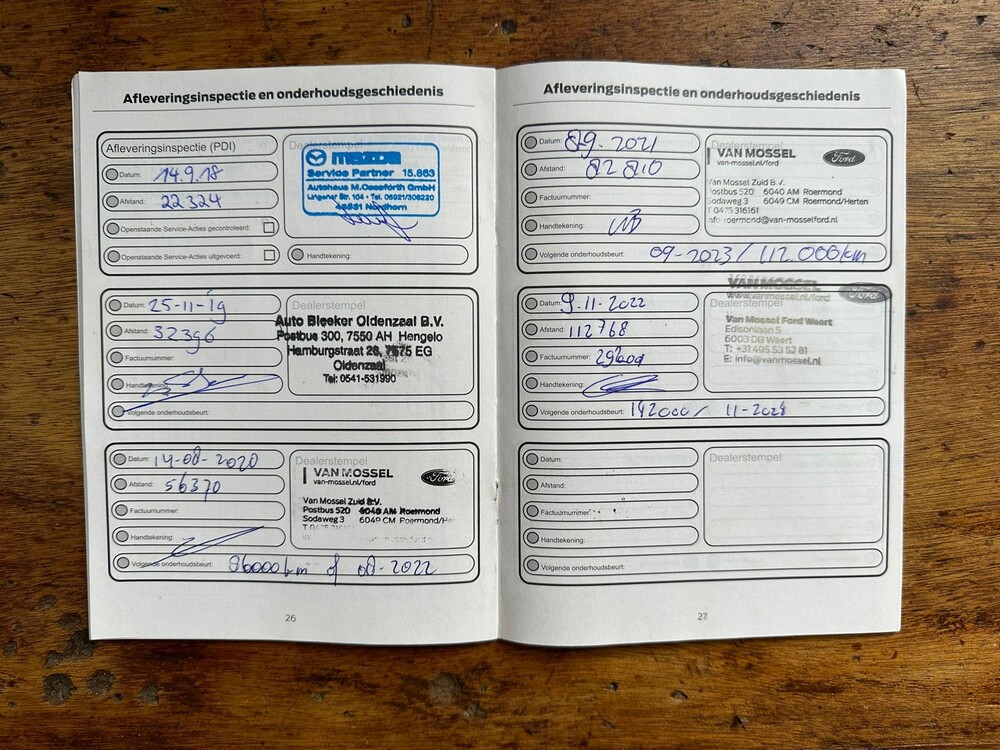 Afleveringsinspectie en onderhoudsgeschiedenis
Afleveringsinspectie (PDI)
Datum: 14.9.18
Afstand: 22 324
Openstaande Service-Acties gecontroleerd:
Openstaande Service-Acties uitgevoerd:
Dealerstempel
mazda
Service Partner 15.863
Autohaus M.Oeseforth GmbH
Lingener Str. 104 • Tel. 05921/306220
48531 Nordhorn
Handtekening:
Datum: 25-11-19
Afstand: 32396
Factuurnummer:
Handtekening:
Volgende onderhoudsbeurt:
Dealerstempel
Auto Bleeker Oldenzaal B.V.
Postbus 300, 7550 AH Hengelo
Hamburgstraat 26, 7575 EG
Oldenzaal
Tel: 0541-531990
Datum: 14-08-2020
Afstand: 56370
Factuurnummer:
Handtekening:
Volgende onderhoudsbeurt: 86000km of 08-2022
Dealerstempel
VAN MOSSEL
van-mossel.nl/ford
Ford
Van Mossel Zuid B.V.
Postbus 520 6040 AM Roermond
Sodaweg 3 6049 CM Roermond/H
26
Afleveringsinspectie en onderhoudsgeschiedenis
Datum: 09-2021
Afstand: 82 810
Factuurnummer:
Handtekening:
Volgende onderhoudsbeurt: 09-2023 / 112.000km
VAN MOSSEL
van-mossel.nl/ford
Ford
Van Mossel Zuid B.V.
Postbus 520 6040 AM Roermond
Sodaweg 3 6049 CM Roermond/Herten
T 0475 316161
info-roermond@van-mosselford.nl
Datum: 9-11-2022
Afstand: 112768
Factuurnummer:
Handtekening:
Volgende onderhoudsbeurt: 142000 / 11-2024
VAN MOSSEL
www.vanmossel.nl/ford
Ford
Dealerstempel
Van Mossel Ford Weert
Edisonlaan 5
6003 DB Weert
T: +31 495 53 52 81
E: info@vanmossel.nl
Datum:
Afstand:
Factuurnummer:
Handtekening:
Volgende onderhoudsbeurt:
Dealerstempel
27